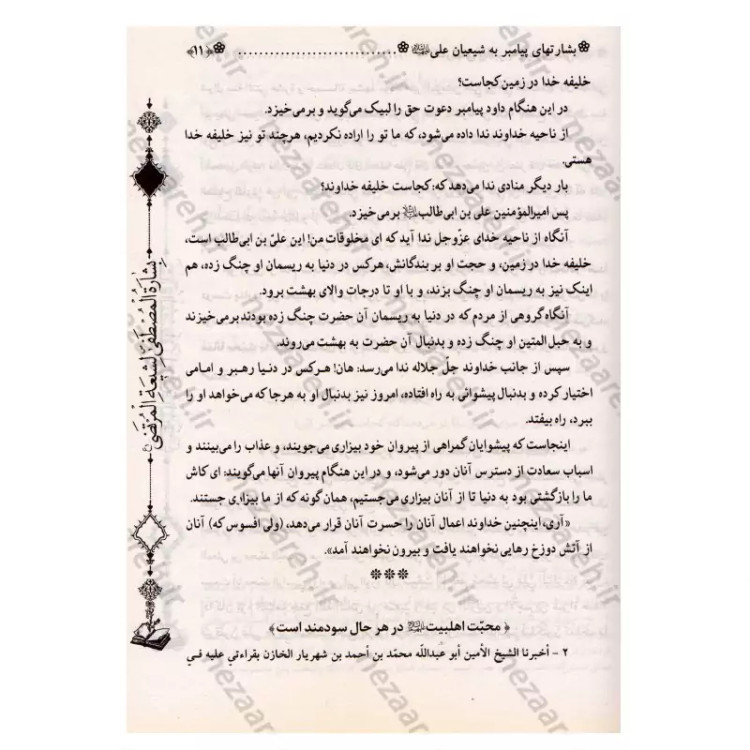 بشارتهای پیامبر به شیعیان علی؏ .............................. ﴿۱۱﴾
خلیفه خدا در زمین کجاست؟
در این هنگام داود پیامبر دعوت حق را لبیک می‌گوید و برمی‌خیزد.
از ناحیه خداوند ندا داده می‌شود، که ما تو را اراده نکردیم، هرچند تو نیز خلیفه خدا
هستی.
بار دیگر منادی ندا می‌دهد که: کجاست خلیفه خداوند؟
پس امیرالمؤمنین علی بن ابی‌طالب؏ برمی‌خیزد.
آنگاه از ناحیه خدای عزّوجل ندا آید که ای مخلوقات من! این علیّ بن ابی‌طالب است،
خلیفه خدا در زمین، و حجت او بر بندگانش، هرکس در دنیا به ریسمان او چنگ زده، هم
اینک نیز به ریسمان او چنگ بزند، و با او تا درجات والای بهشت برود.
آنگاه گروهی از مردم که در دنیا به ریسمان آن حضرت چنگ زده بودند برمی‌خیزند
و به حبل المتین او چنگ زده و بدنبال آن حضرت به بهشت می‌روند.
سپس از جانب خداوند جلّ جلاله ندا می‌رسد: هان! هرکس در دنیا رهبر و امامی
اختیار کرده و بدنبال پیشوائی به راه افتاده، امروز نیز بدنبال او به هرجا که می‌خواهد او را
ببرد، راه بیفتد.
اینجاست که پیشوایان گمراهی از پیروان خود بیزاری می‌جویند، و عذاب را می‌بینند و
اسباب سعادت از دسترس آنان دور می‌شود، و در این هنگام پیروان آنها می‌گویند: ای کاش
ما را بازگشتی بود به دنیا تا از آنان بیزاری می‌جستیم، همان گونه که از ما بیزاری جستند.
«آری، اینچنین خداوند اعمال آنان را حسرت آنان قرار می‌دهد، (ولی افسوس که) آنان
از آتش دوزخ رهایی نخواهند یافت و بیرون نخواهند آمد».
***
﴿ محبّت اهلبیت؏ در هر حال سودمند است ﴾
۲ – أخبرنا الشیخ الأمین أبو عبدالله محمّد بن أحمد بن شهریار الخازن بقراءتي علیه في
بِشارَةُ المُصْطَفی لِشیعَةِ المُرْتَضی
nezaareh.ir